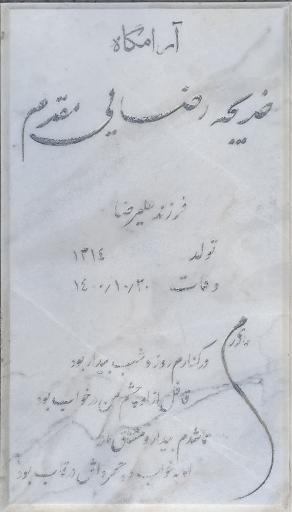 آرامگاه
خدیجه رضایی مقدم
فرزند علیرضا
تولد ۱۳۱۴
وفات ۱۴۰۰/۱۰/۳۰
مادرم
در کنارم روز و شب بیدار بود
غافل از او چشم من در خواب بود
تا شدم بیدار و مشتاق
او به خواب و چهره اش در قاب بود